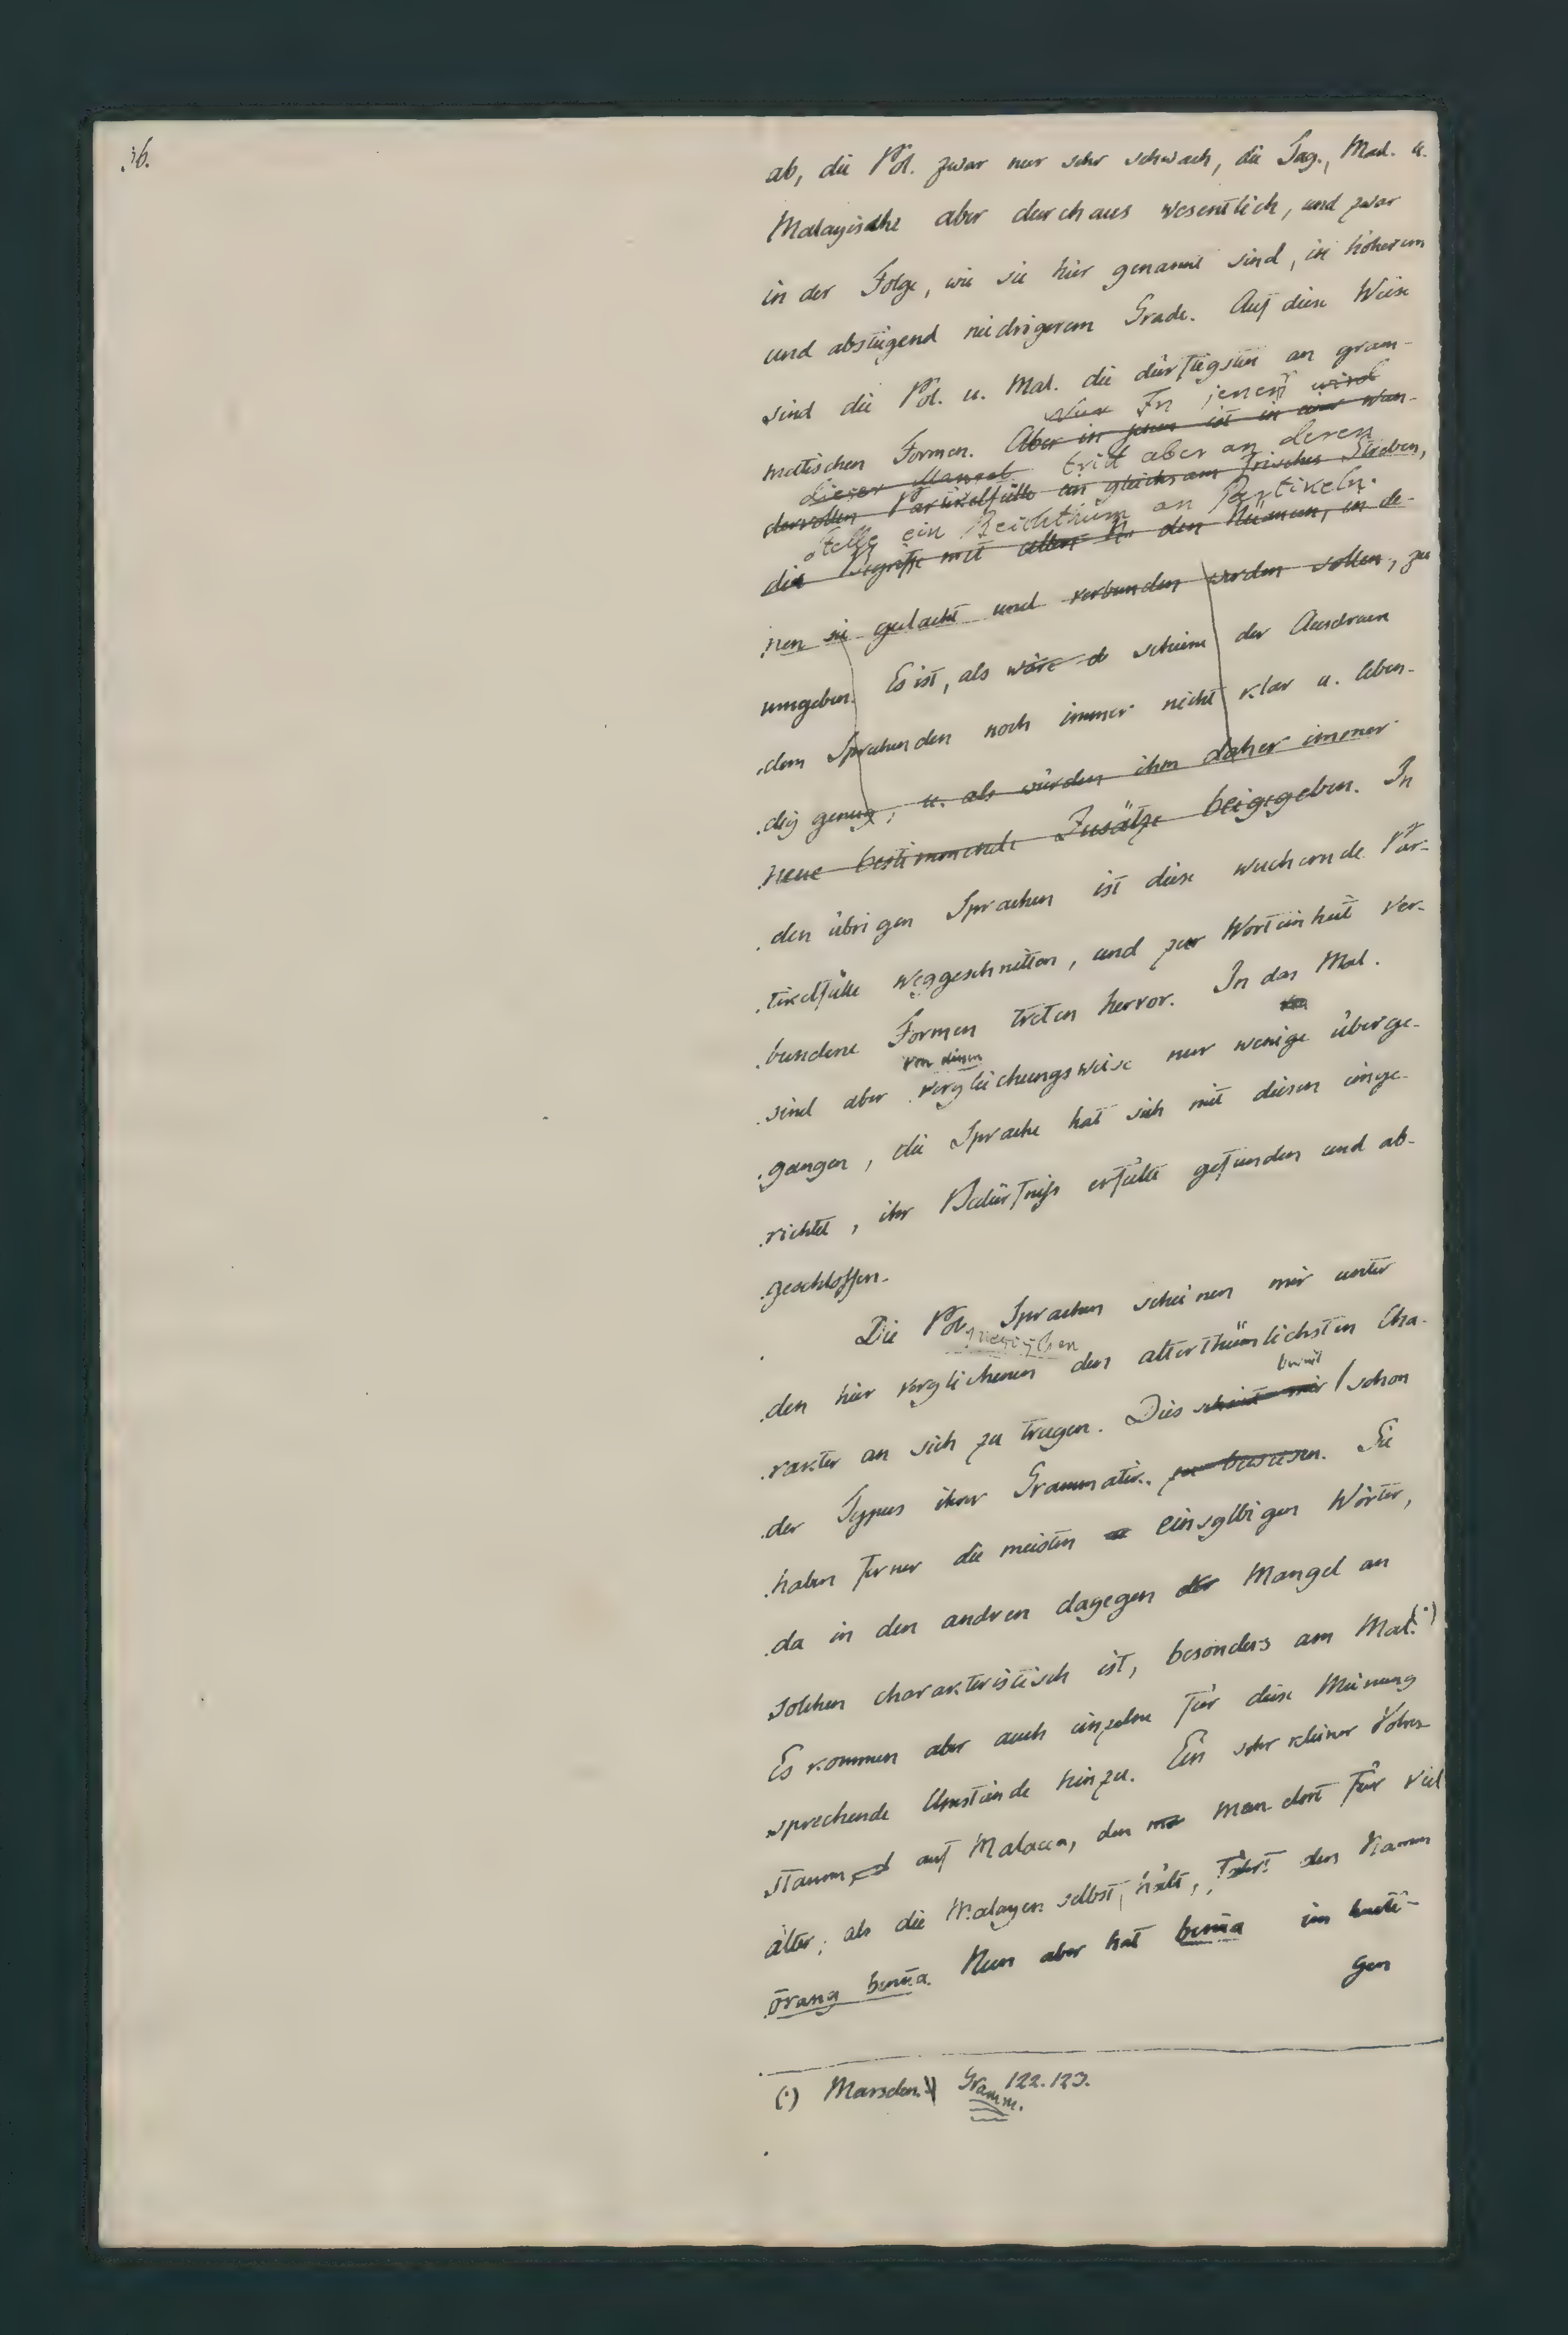 36.
ab, die Pol. zwar nur sehr schwach, die Tag., Mad. u.
Malayische aber durchaus wesentlich, und zwar
in der Folge, wie sie hier genannt sind, in höherem
und absteigend niedrigerem Grade. Auf diese Weise
sind die Pol. u. Mal. die dürftigsten an gram-
Nur In jenen wird
matischen Formen. Aber in jenen ist in einer wun-
dieser Mangel tritt aber an deren
dervollen Partikelfülle ein gleichsam frisches Streben,
Stelle ein Reichthum an Partikeln.
die Begriffe mit allen den Nüancen, in de-
nen sie gedacht und verbunden werden sollen, zu
umgeben. Es ist, als wäre d schiene der Ausdruck
dem Sprechenden noch immer nicht klar u. leben-
dig genug, u. als würden ihm daher immer
neue bestimmende Zusätze beigegeben. In
den übrigen Sprachen ist diese wuchernde Par-
tikelfülle weggeschnitten, und zur Worteinheit ver-
bundene Formen treten hervor. In das Mal.
von diesen
sind aber vergleichungsweise nur wenige überge-
gangen, die Sprache hat sich mit diesen einge-
richtet, ihr Bedürfniß erfüllt gefunden und ab-
geschlossen.
Die Pol. Sprachen scheinen mir unter
nesischen
den hier verglichenen den alterthümlichsten Cha-
beweist
rakter an sich zu tragen. Dies scheint mir schon
der Typus ihrer Grammatik. zu beweisen. Sie
haben ferner die meisten einsylbigen Wörter,
da in den andren dagegen der Mangel an
solchen charakteristisch ist, besonders am Mal. (·)
Es kommen aber auch einzelne für diese Meinung
sprechende Umstände hinzu. Ein sehr kleiner Volks-
stamm auf Malacca, den man dort für viel
älter, als die Malayen selbst, hält, führt den Namen
ōrang benūa. Nun aber hat benūa im heuti-
gen
(·) Marsden. Gramm. 122. 123.